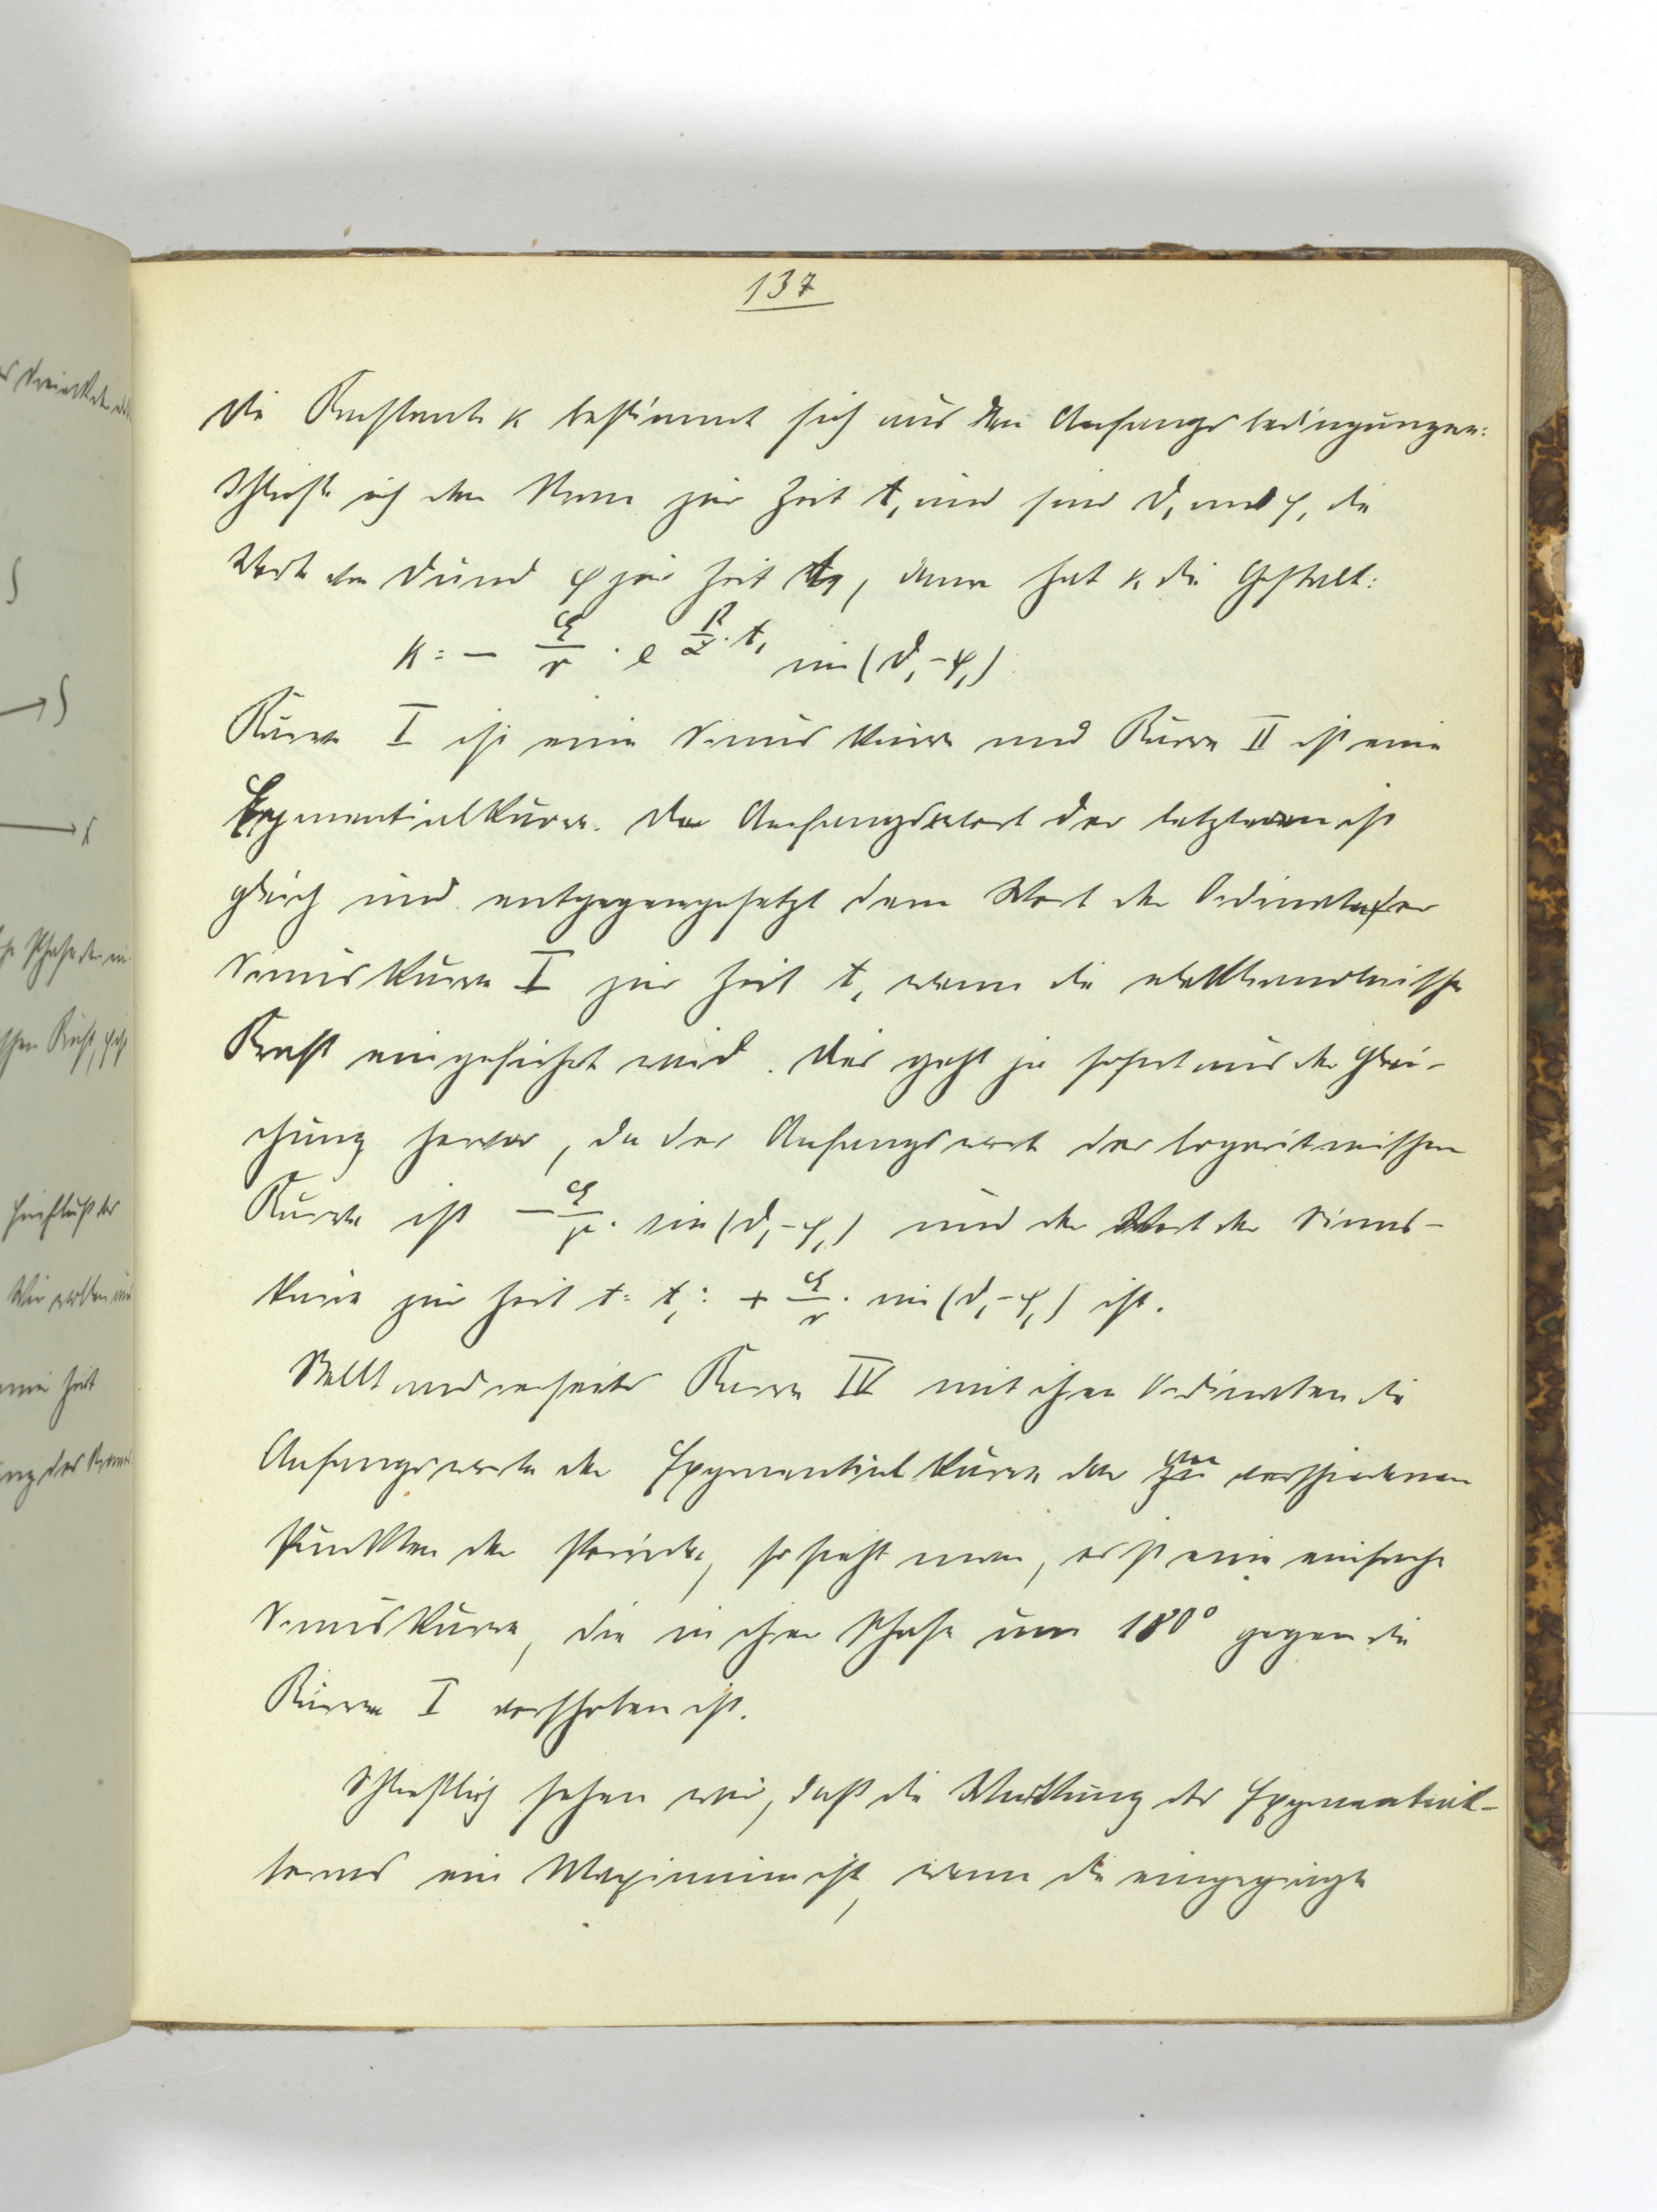 137
Die Konstante K bestimmt sich aus den Anfangsbedingungen:
Schließe ich den Strom zur Zeit t₁ und sind δ₁ und φ₁ die
Werte von δ und φ zur Zeit t₁, dann hat K die Gestalt:
K = − E/r · e^(R/L · t₁) sin(δ₁−φ₁)
Kurve I ist eine Sinuskurve und Kurve II ist eine
Exponentialkurve. Der Anfangswert der letzteren ist
gleich und entgegengesetzt dem Wert der Ordinate der
Sinuskurve I zur Zeit t₁ wenn die elektromotorische
Kraft eingeführt wird. Das geht ja sofort aus der Glei-
chung hervor, da der Anfangswert der logaritmischen
Kurve ist − E/r · sin(δ₁−φ₁) und der Wert der Sinus-
kurve zur Zeit t = t₁: + E/r · sin(δ₁−φ₁) ist.
Stellt andrerseits Kurve IV mit ihren Ordinaten die
Anfangswerte der Exponentialkurve der verschiedenen
Punkten der Periode, so sieht man, es ist eine einfache
Sinuskurve, die in ihrer Phase um 180° gegen die
Kurve I verschoben ist.
Schließlich sehen wir, daß die Wirkung des Exponential-
terms ein Maximum ist, wenn die eingeprägte